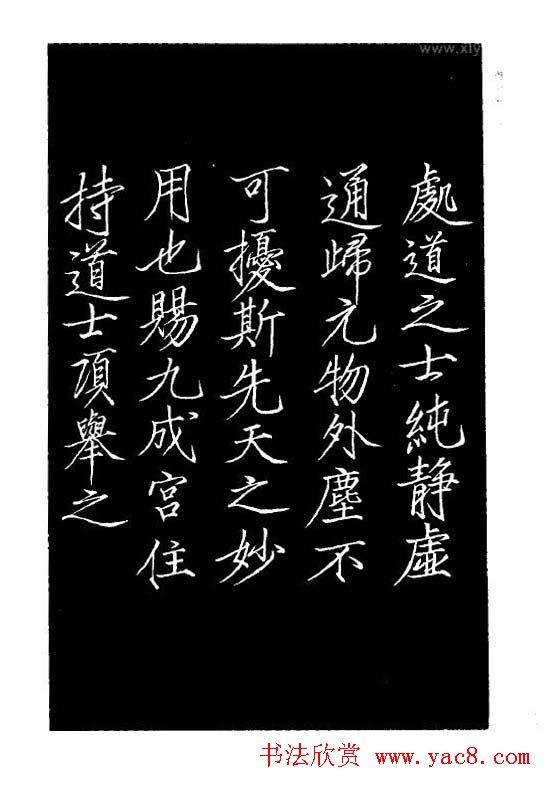 www.xly
處道之士純静虛
通歸元物外塵不
可擾斯先天之妙
用也賜九成宮住
持道士項舉之
书法欣赏 www.yac8.com